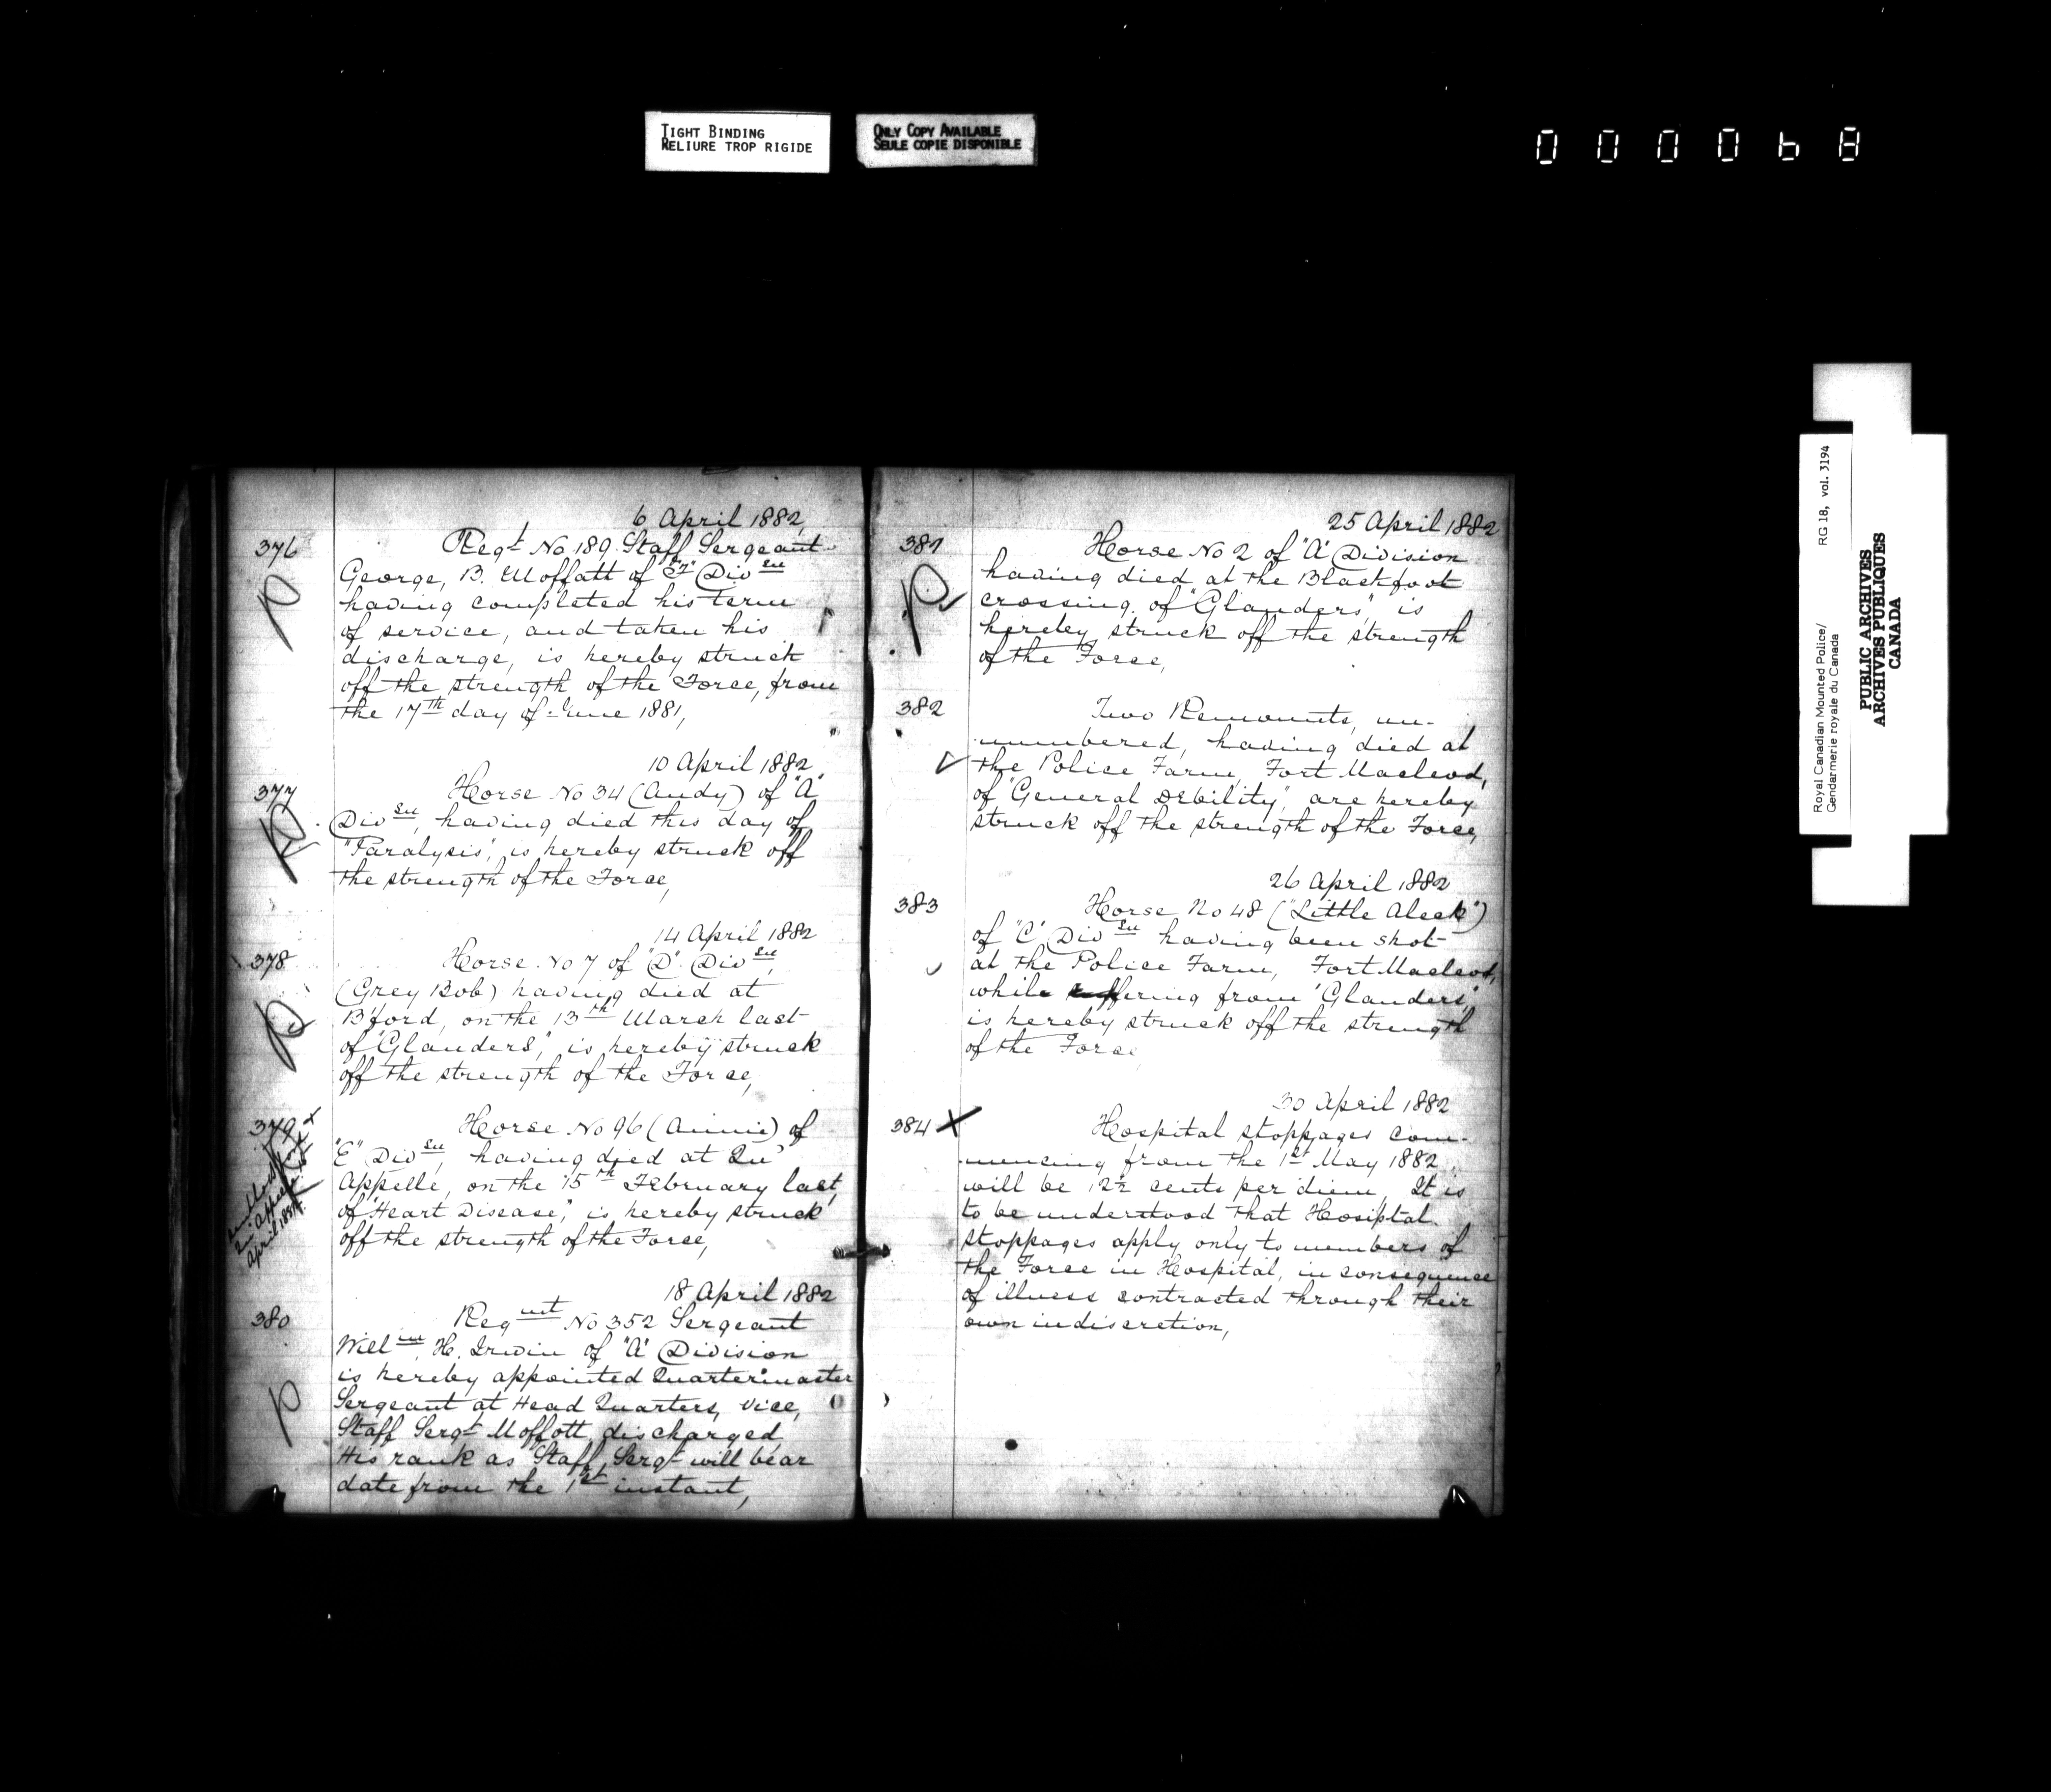 TIGHT BINDING
RELIURE TROP RIGIDE
ONLY COPY AVAILABLE
SEULE COPIE DISPONIBLE
000068
6 April 1882,
376
Regt No 189 Staff Sergeant
George, B. Moffatt of "F" Divsn
having completed his term
of service, and taken his
discharge, is hereby struck
off the strength of the Force, from
the 17th day of June 1881,
10 April 1882
377
Horse No 34 (Andy) of "A"
Divsn, having died this day of
"Paralysis", is hereby struck off
the strength of the Force,
14 April 1882
378
Horse No 7 of "D" Divsn,
(Grey Bob) having died at
B'ford, on the 13th March last
of "Glanders", is hereby struck
off the strength of the Force,
379
Horse No 96 (Annie) of
"E" Divsn, having died at Qu'
Appelle, on the 15th February last,
of "Heart Disease," is hereby struck
off the strength of the Force,
Qu'Appelle
April 1881
18 April 1882
380
Regmt No 352 Sergeant
Willm, H. Irwin of "A" Division
is hereby appointed Quartermaster
Sergeant at Head Quarters, vice,
Staff Sergt Moffott, discharged,
His rank as Staff Sergt will bear
date from the 1st instant,
25 April 1882
381
Horse No 2 of "A" Division
having died at the Blackfoot
crossing, of "Glanders", is
hereby struck off the strength
of the Force,
382
Two Remounts, un-
numbered, having died at
the Police Farm, Fort Macleod,
of "General Debility", are hereby
struck off the strength of the Force,
26 April 1882
383
Horse No 48 ("Little Aleck")
of "C" Divsn having been shot
at the Police Farm, Fort Macleod,
while suffering from "Glanders",
is hereby struck off the strength
of the Force
30 April 1882
384
Hospital stoppages com-
mencing from the 1st May 1882
will be 12½ cents per diem, It is
to be understood that Hosiptal
stoppages apply only to members of
the Force in Hospital, in consequence
of illness contracted through their
own indiscretion,
Royal Canadian Mounted Police/
Gendarmerie royale du Canada
RG 18, vol. 3194
PUBLIC ARCHIVES
ARCHIVES PUBLIQUES
CANADA